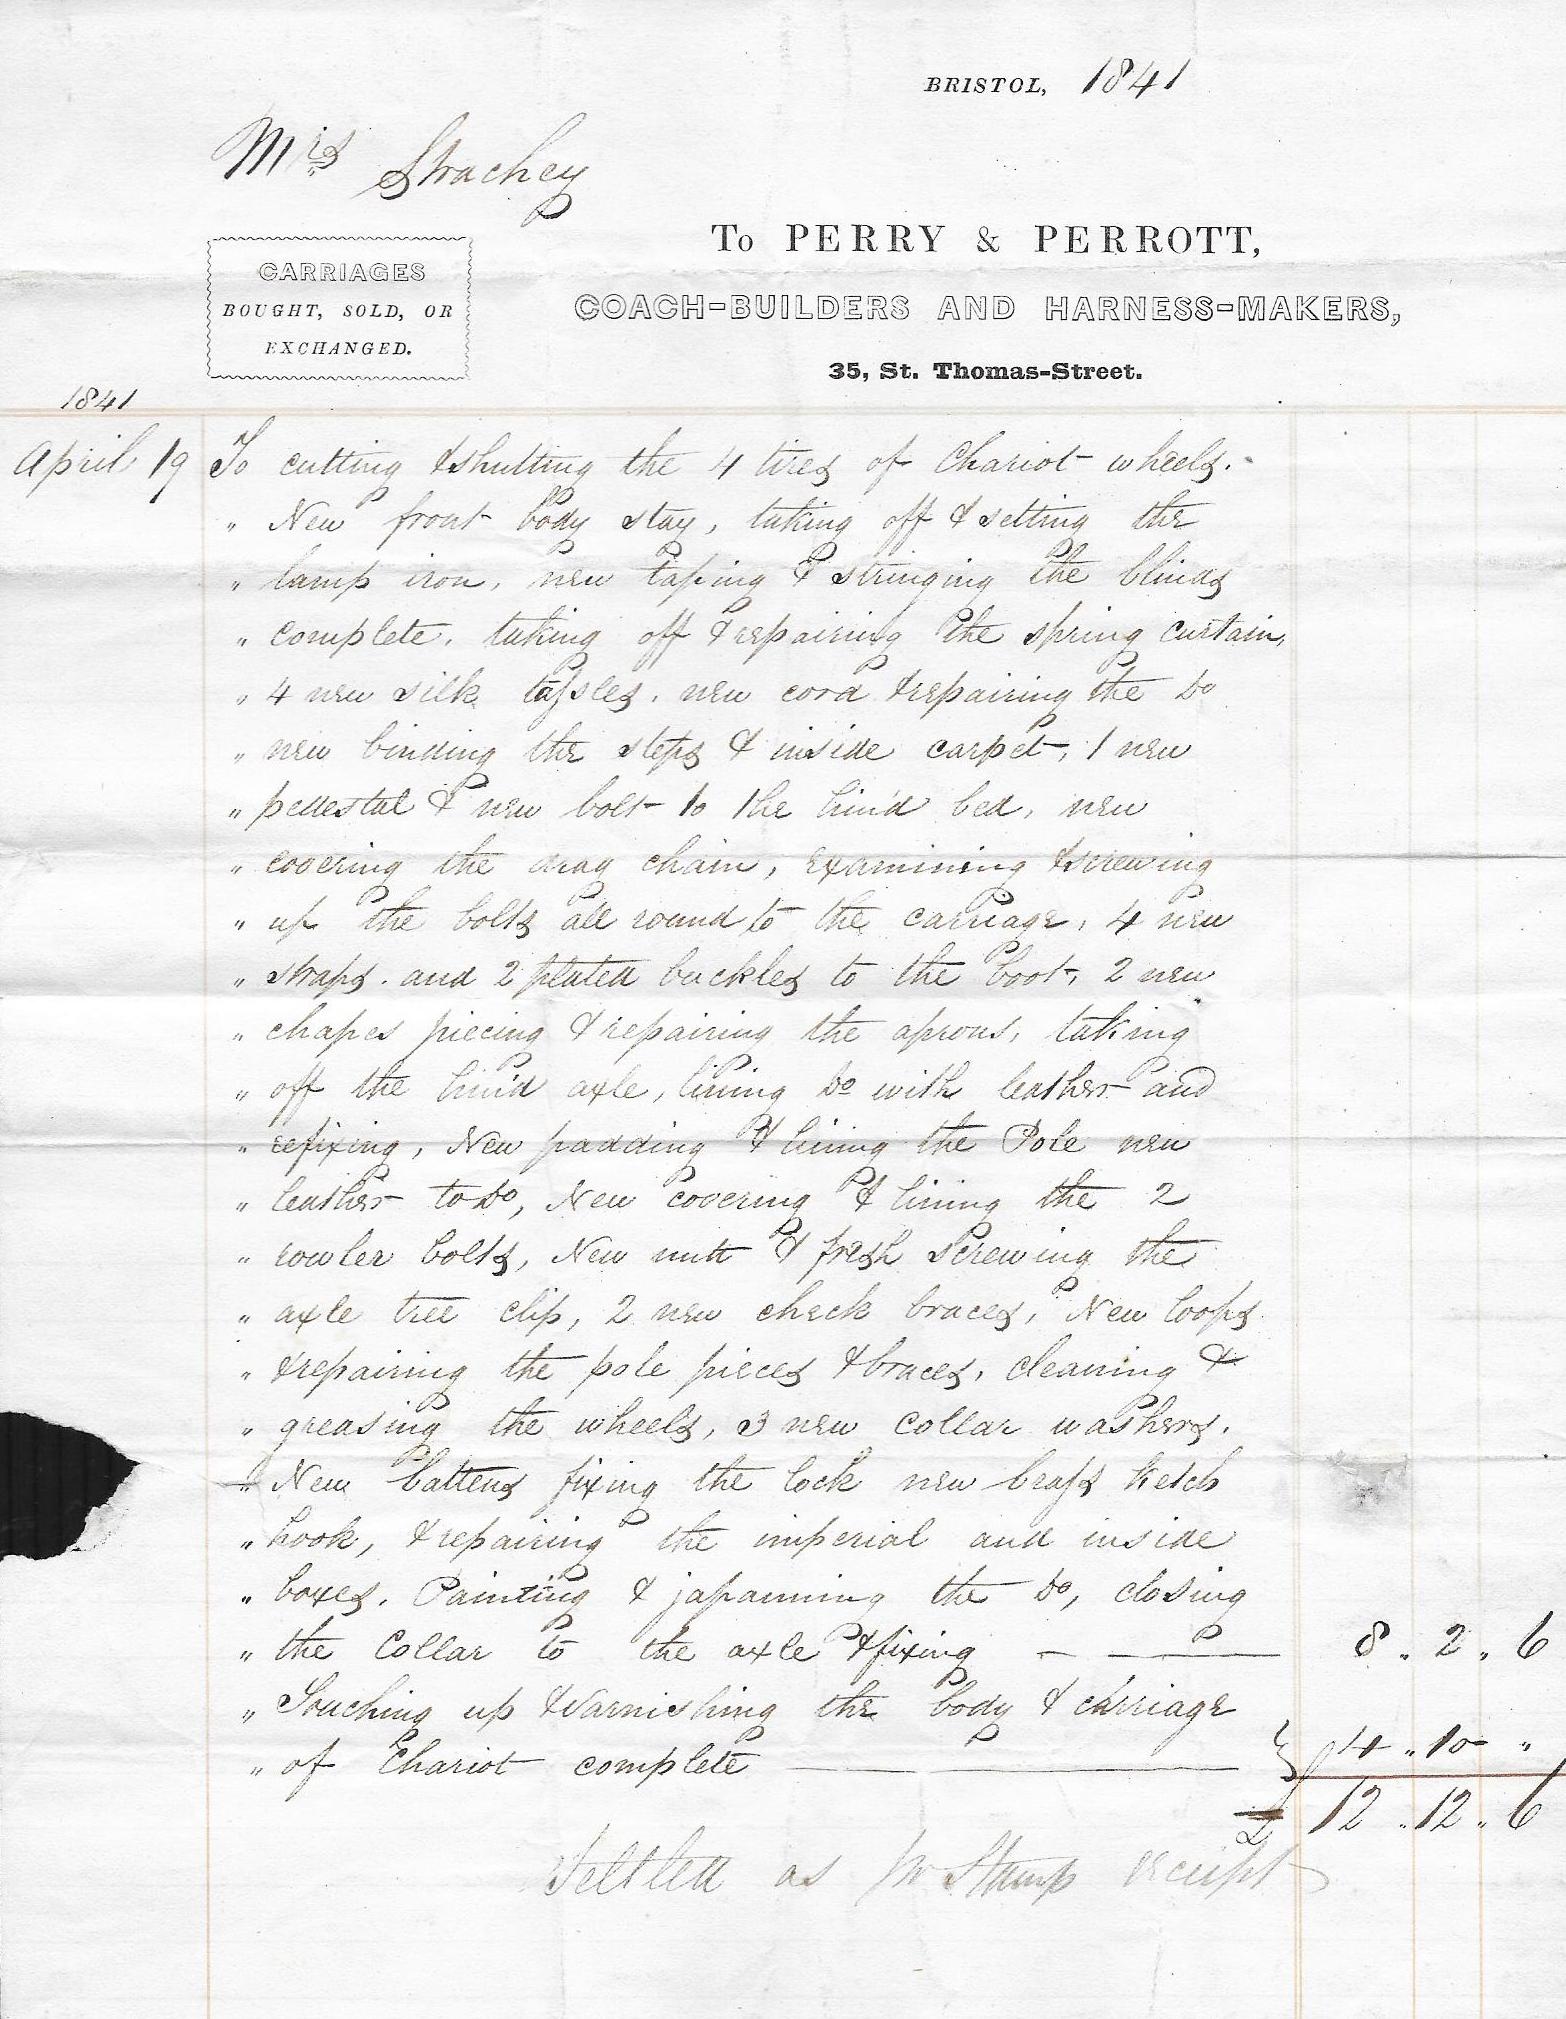 BRISTOL, 1841
Mrs Strachey
To PERRY & PERROTT,
CARRIAGES
BOUGHT, SOLD, OR
EXCHANGED.
COACH-BUILDERS AND HARNESS-MAKERS,
35, St. Thomas-Street.
1841
April 19 To cutting & shutting the 4 tires of Chariot wheels.
" New front body stay, taking off & setting the
" lamp iron, new taping & stringing the blinds
" complete. taking off & repairing the spring curtain,
" 4 new silk tassles. new cord & repairing the Do
" new binding the steps & inside carpet, 1 new
" pedestal & new bolt to the hind bed, new
" covering the drag chain, examining & screwing
" up the bolts all round to the carriage, 4 new
" straps. and 2 plated buckles to the boot, 2 new
" chapes piecing & repairing the aprons, taking
" off the hind axle, lining Do with leather and
" refixing, New padding & lining the Pole new
" leather to Do, New covering & lining the 2
" rowler bolts, New nutt & fresh screwing the
" axle tree clip, 2 new check braces, New loops
" & repairing the pole pieces & braces, cleaning &
" greasing the wheels, 3 new Collar washers.
" New battens fixing the lock new brass ketch
" hook, & repairing the imperial and inside
" boxes. Painting & japanning the Do, closing
" the Collar to the axle & fixing — — 8 . 2 . 6
" Touching up & Varnishing the body & carriage
" of Chariot complete — 4 . 10 "
£ 12 . 12 . 6
Settled as pr Stamp receipt